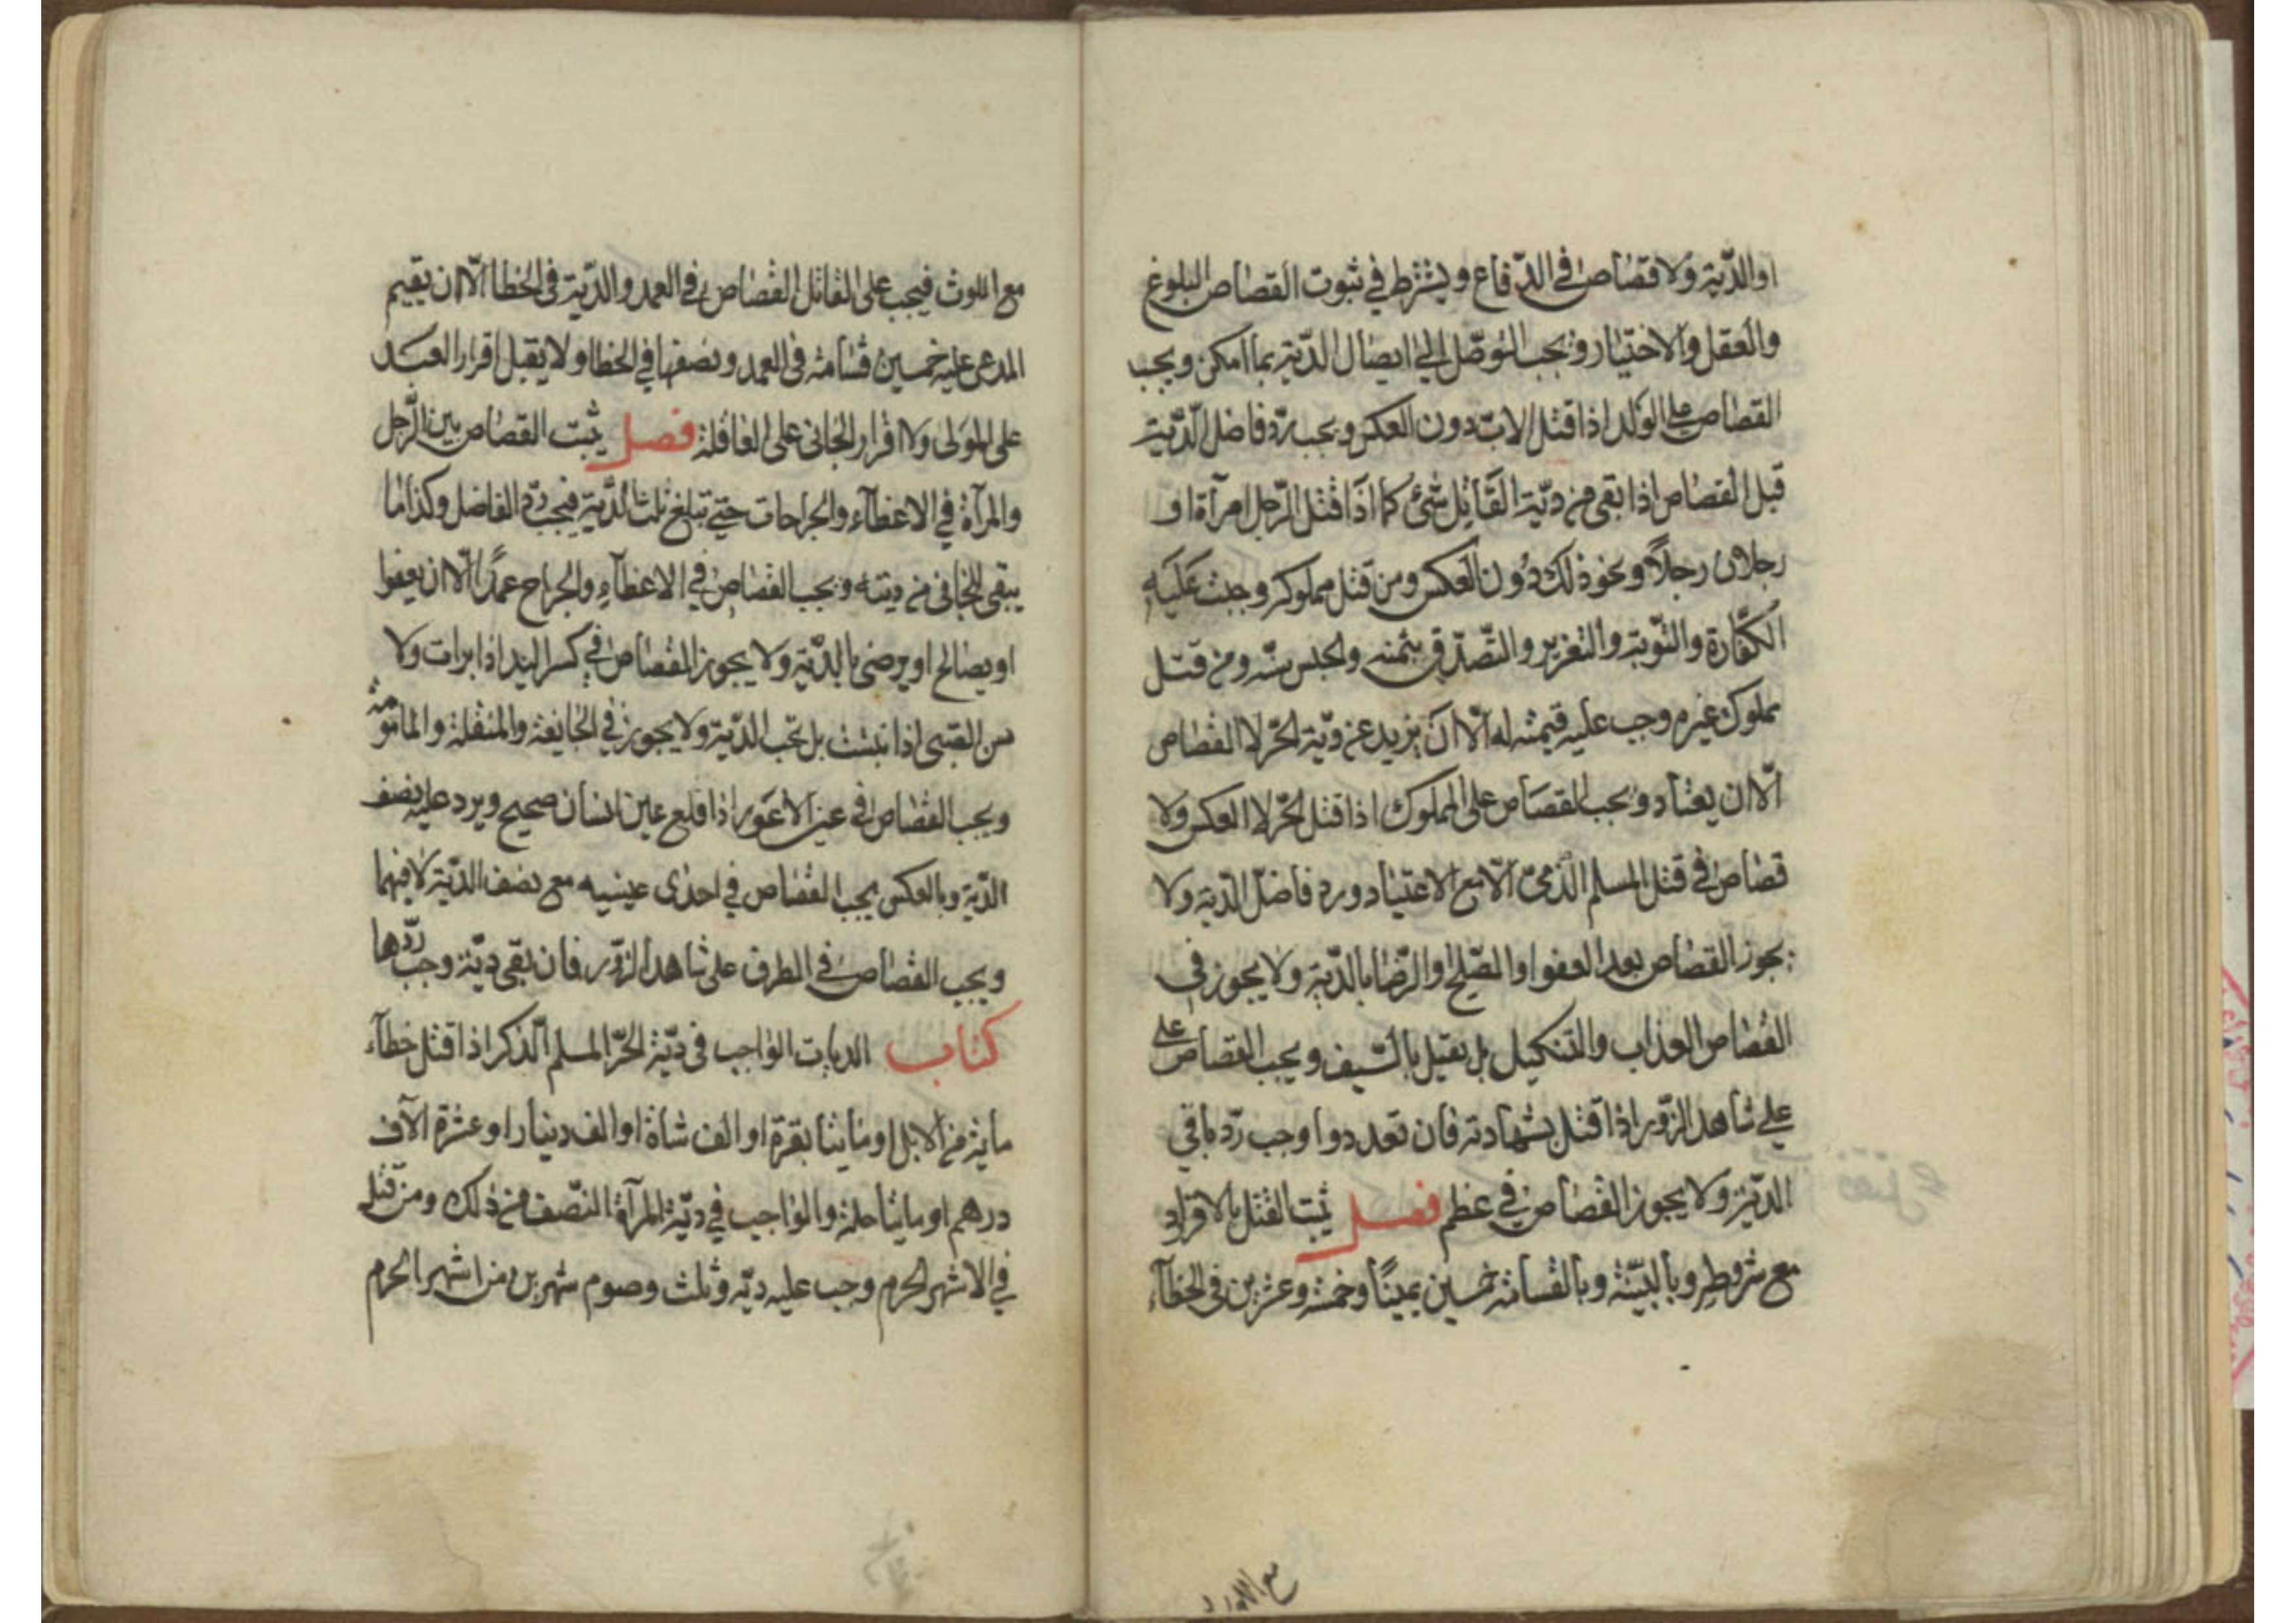 او الدّية ولا قصاص في الدّفاع ويشترط في ثبوت القصاص البلوغ
والعقل والاختيار ويجب التوصّل الى ايصال الدّية بما امكن ويجب
القصاص على الولد اذا قتل الاب دون العكس ويجب ردّ فاضل الدّية
قبل القصاص اذا بقى من دية القاتل شئ كما اذا قتل الرّجل امرأة او
رجلان رجلاً ونحو ذلك دون العكس ومن قتل مملوكه وجبت عليه
الكفّارة والتّوبة والتعزير والتّصدّق بثمنه والحبس سنه ومن قتل
مملوك غيره وجب عليه قيمته له الّا ان يزيد عن ديّة الحرّ لا القصاص
الّا ان يعتاد ويجب القصاص على المملوك اذا قتل الحرّ لا العكس ولا
قصاص في قتل المسلم الذّميّ الّا مع الاعتياد ورد فاضل الدّية ولا
يجوز القصاص بعد العفو او الصّلح او الرّضا بالدّية ولا يجوز في
القصاص العذاب والتنكيل بل يقتل بالسّيف ويجب القصاص على
على شاهد الزّور اذا قتل بشهادته فان تعددوا وجب ردّ باقي
الدّية ولا يجوز القصاص في عظم فصل يثبت القتل بالاقرار
مع شروطه وبالبيّنة وبالقسامة خمسين يميناً وخمسة وعشرين في الخطاء
مع اللوث فيجب على القاتل القصاص في العمد والدّية في الخطا الّا ان يقيم
المدعى عليه خمسين قسامة في العمد ونصفها في الخطا ولا يقبل اقرار العبد
على المولى ولا اقرار الجاني على العاقلة فصل يثبت القصاص بين الرّجل
والمرأة في الاعضاء والجراحات حتى تبلغ ثلث الدّية فيجب ردّ الفاضل وكذا ما
يبقى للجاني من ديته ويجب القصاص في الاعضاء والجراح عمداً الّا ان يعفوا
او يصالح او يرضى بالدّية ولا يجوز القصاص في كسر اليد اذا برأت ولا
سن الصّبى اذا نبتت بل تجب الدّية ولا يجوز في الجائفة والمنقلة والمأمومة
ويجب القصاص في عين الاعور اذا قلع عين انسان صحيح ويرد عليه نصف
الدّية وبالعكس يجب القصاص في احدى عينيه مع نصف الدّية لا فيهما
ويجب القصاص في الطرف على شاهد الزّور فان بقى ديّة وجب ردّها
كتاب الديات الواجب في ديّة الحرّ المسلم الذّكر اذا قتل خطاء
مائة من الابل او مائتا بقرة او الف شاة او الف دينار او عشرة الآف
درهم او مائتا حلة والواجب في ديّة المرآة النّصف من ذلك ومن قتل
في الاشهر الحرم وجب عليه ديّة وثلث وصوم شهرين من اشهر الحرم
مع اللوث